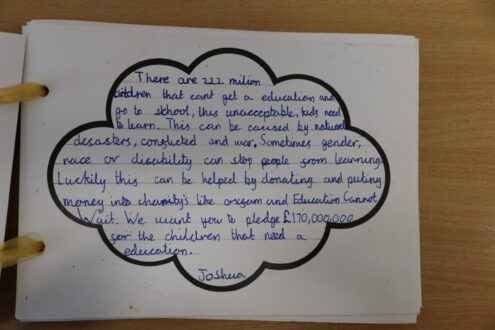 There are 222 milion
children that cant get a education and
go to school, this unacceptable, kids need
to learn. This can be caused by natural
desasters, conflicted and war, Sometimes gender,
race or disability can stop people from learning.
Luckily this can be helped by donating and puting
money into charity's like oxfam and Education Cannot
Wait. We want you to pledge £170,000,000
for the children that need a
education.
Joshua